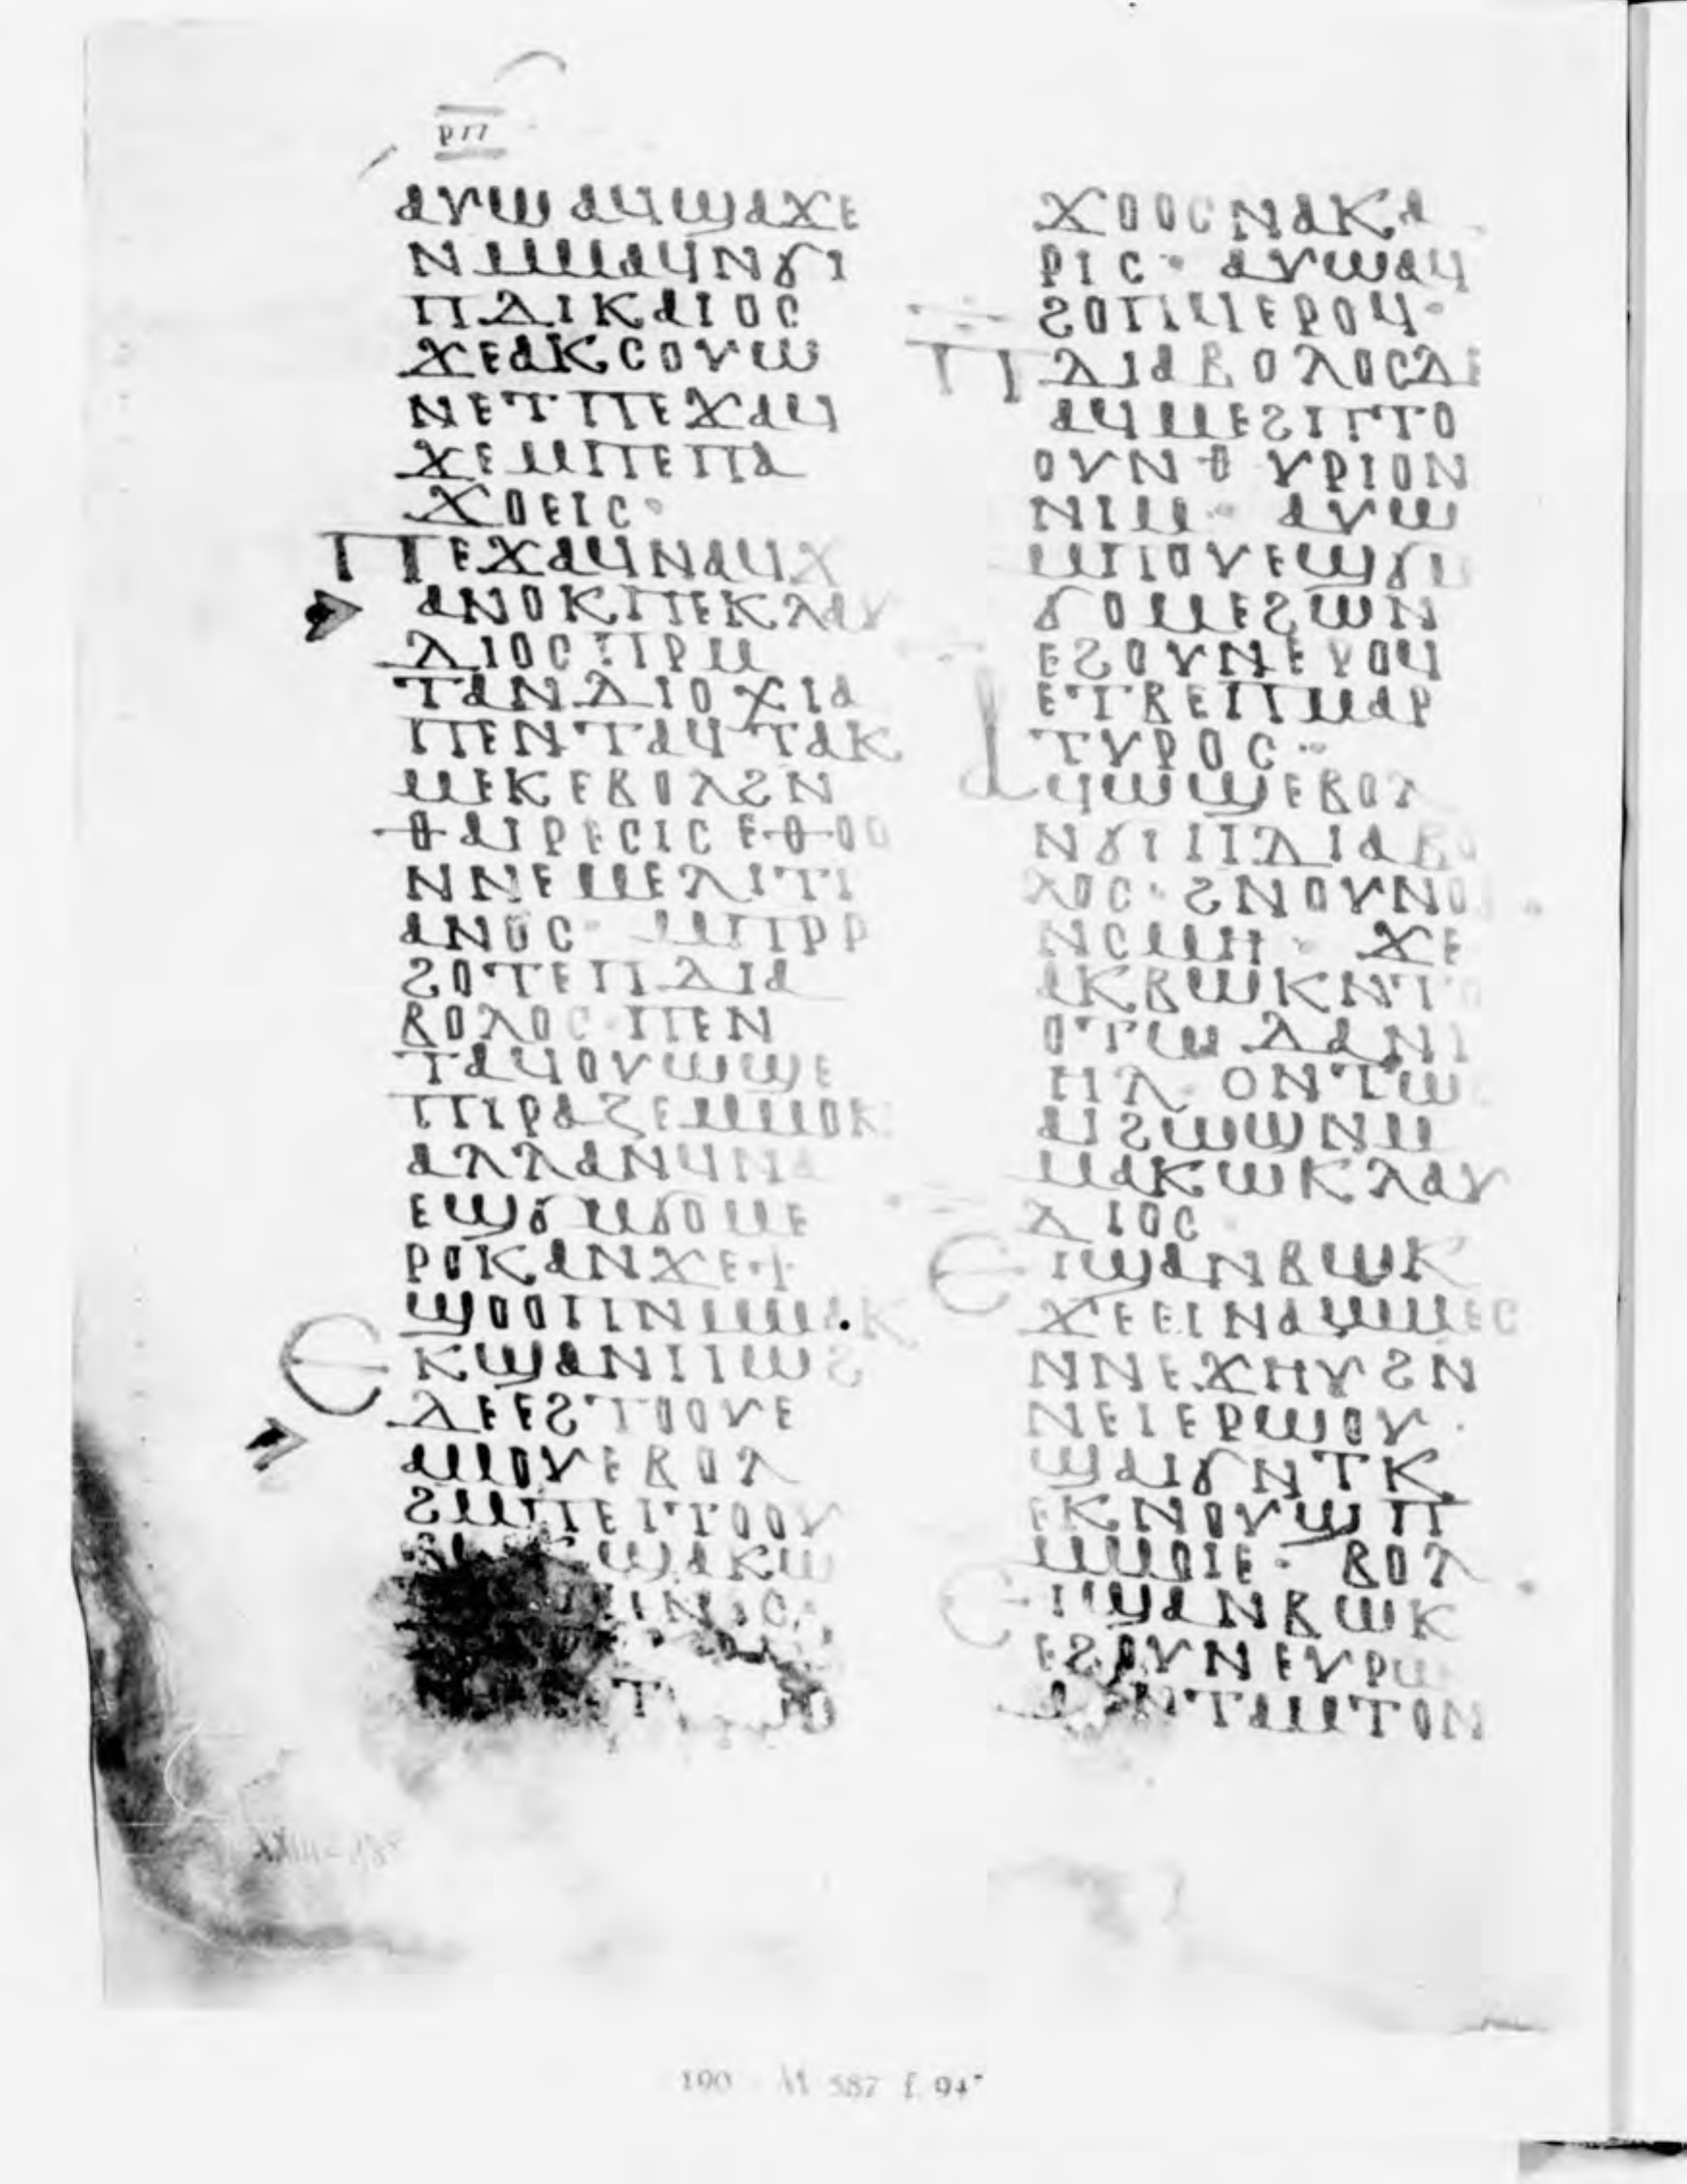 ⲣⲡ
ⲁⲩⲱ ⲁϥϣⲁϫⲉ
ⲛⲙⲙⲁϥⲛϭⲓ
ⲡⲇⲓⲕⲁⲓⲟⲥ
ϫⲉⲁⲕⲥⲟⲩⲱ
ⲛⲉⲧ ⲡⲉϫⲁϥ
ϫⲉⲙⲡⲉⲡⲁ
ϫⲟⲉⲓⲥ·
ⲡⲉϫⲁϥⲛⲁϥϫ
ⲁⲛⲟⲕⲡⲉⲕⲗⲁⲩ
ⲇⲓⲟⲥ ⲡⲣⲙ
ⲧⲁⲛⲇⲓⲟⲭⲓⲁ
ⲡⲉⲛⲧⲁϥⲧⲁⲕ
ⲙⲉⲕⲉⲃⲟⲗϩⲛ
ⲑⲁⲓⲣⲉⲥⲓⲥ ⲉⲑⲟⲟ
ⲛⲛⲉⲙⲉⲗⲓⲧⲓ
ⲁⲛⲟⲥ· ⲙⲡⲣⲣ
ϩⲟⲧⲉⲡⲇⲓⲁ
ⲃⲟⲗⲟⲥ·ⲡⲉⲛ
ⲧⲁϥⲟⲩⲱϣⲉ
ⲡⲓⲣⲁⲍⲉⲙⲙⲟⲕ
ⲁⲗⲗⲁⲛϥⲛⲁ
ⲉϣϭⲙϭⲟⲙⲉ
ⲣⲟⲕⲁⲛϫⲉϯ
ϣⲟⲟⲡⲛⲙⲙⲁⲕ
ⲉⲕϣⲁⲛⲡⲱϩ
ⲇⲉⲉϩⲧⲟⲟⲩⲉ
ⲁⲙⲟⲩⲉⲃⲟⲗ
ϩⲙⲡⲉⲓⲧⲟⲟⲩ
ϣⲁⲕⲱ
ϫⲟⲟⲥⲛⲁⲕⲁ
ⲣⲓⲥ· ⲁⲩⲱⲁϥ
ϩⲟⲡϥⲉⲣⲟϥ·
ⲡⲇⲓⲁⲃⲟⲗⲟⲥⲇⲉ
ⲁϥⲙⲉϩⲡⲧⲟ
ⲟⲩⲛⲑⲩⲣⲓⲟⲛ
ⲛⲓⲙ· ⲁⲩⲱ
ⲙⲡⲟⲩⲉϣϭⲙ
ϭⲟⲙⲉϩⲱⲛ
ⲉϩⲟⲩⲛⲉⲣⲟϥ
ⲉⲧⲃⲉⲡⲙⲁⲣ
ⲧⲩⲣⲟⲥ·
ⲁϥⲱϣⲉⲃⲟⲗ
ⲛϭⲓⲡⲇⲓⲁⲃⲟ
ⲗⲟⲥ· ϩⲛⲟⲩⲛⲟ
ⲛⲥⲙⲏ· ϫⲉ
ⲁⲕⲃⲱⲕⲛⲧⲟ
ⲟⲧⲱ ⲇⲁⲛⲓ
ⲏⲗ· ⲟⲛⲧⲱ
ⲁⲓϩⲱϣⲛⲙ
ⲙⲁⲕⲱⲕⲗⲁⲩ
ⲇⲓⲟⲥ·
ⲉⲓϣⲁⲛⲃⲱⲕ
ϫⲉⲉⲓⲛⲁⲱⲙⲉⲥ
ⲛⲛⲉϫⲏⲩϩⲛ
ⲛⲉⲓⲉⲣⲱⲟⲩ·
ϣⲁⲓϭⲛⲧⲕ
ⲉⲕⲛⲟⲩϣⲡ
ⲙⲙⲟⲓⲉ· ⲃⲟⲗ
ⲉⲓϣⲁⲛⲃⲱⲕ
ⲉϩⲟⲩⲛⲉⲩⲣⲱ
ⲛⲧⲁⲙⲧⲟⲛ
190 M 587 f. 94ᵛ